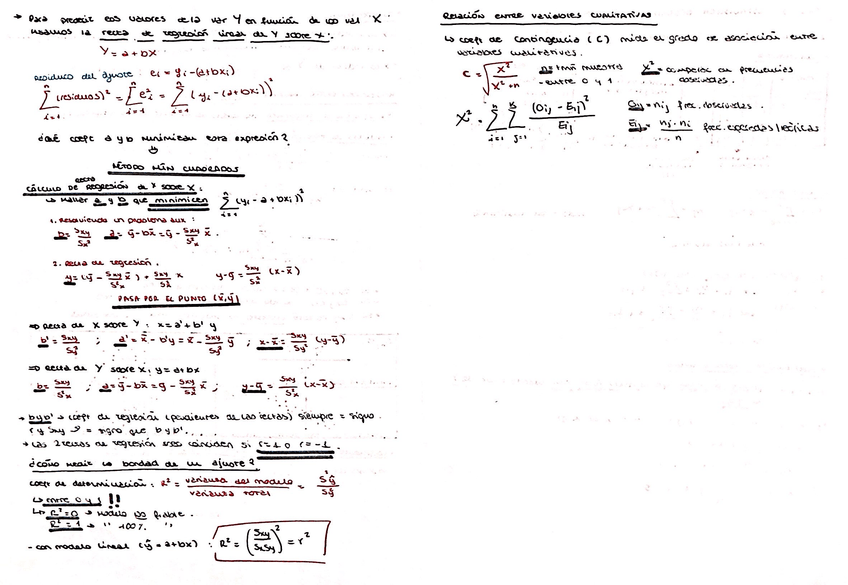 → Para predecir los valores de la var Y en función de los val X
usamos la recta de regresión lineal de Y sobre X:
Y = a + bX
Residuos del ajuste: ei = yi - (a + bxi)
n∑i=1 (residuos)² = n∑i=1 ei² = n∑i=1 (yi - (a + bxi))²
¿Qué coefs a y b minimizan esta expresión?
MÉTODO MÍN CUADRADOS
CÁLCULO DE recta REGRESIÓN DE Y SOBRE X:
↳ Hallar a y b que minimicen n∑i=1 (yi - a + bxi))²
1. Resolviendo un problema aux:
b = Sxy/S²x a = ȳ - bx̄ = ȳ - Sxy/S²x x̄.
2. Recta de regresión.
y = (ȳ - Sxy/S²x x̄) + Sxy/S²x x y - ȳ = Sxy/S²x (x - x̄)
PASA POR EL PUNTO (x̄, ȳ)
⇒ Recta de X sobre Y: x = a' + b' y
b' = Sxy/Sy² ; a' = x̄ - b'y = x̄ - Sxy/Sy² ȳ ; x - x̄ = Sxy/Sy² (y - ȳ)
⇒ Recta de Y sobre X: y = a + bx
b = Sxy/S²x ; a = ȳ - bx̄ = ȳ - Sxy/S²x x̄ ; y - ȳ = Sxy/S²x (x - x̄)
→ b y b' → coefs de regresión (pendientes de las rectas) siempre = signo.
r y Sxy → = signo que b y b'.
→ Las 2 rectas de regresión solo coinciden si r = 1 o r = -1.
¿Cómo medir la bondad de un ajuste?
coef de determinación: R² = varianza del modelo/varianza total = S²ŷ/S²y
↳ entre 0 y 1 !!
↳ R² = 0 → modelo no fiable.
R² = 1 → " 100% "
- con modelo lineal (ŷ = a + bx) : R² = (Sxy/SxSy)² = r²
RELACIÓN ENTRE VARIABLES CUALITATIVAS
↳ coef de contingencia (C) mide el grado de asociación entre
variables cualitativas.
C = √(X²/(X² + n)) n = tmñ muestra X² = comparar con frecuencias
- entre 0 y 1 observadas.
X² = n∑i=1 k∑j=1 (Oij - Eij)²/Eij Oij = nij frec. observadas.
Eij = nj · ni/n frec. esperadas/teóricas